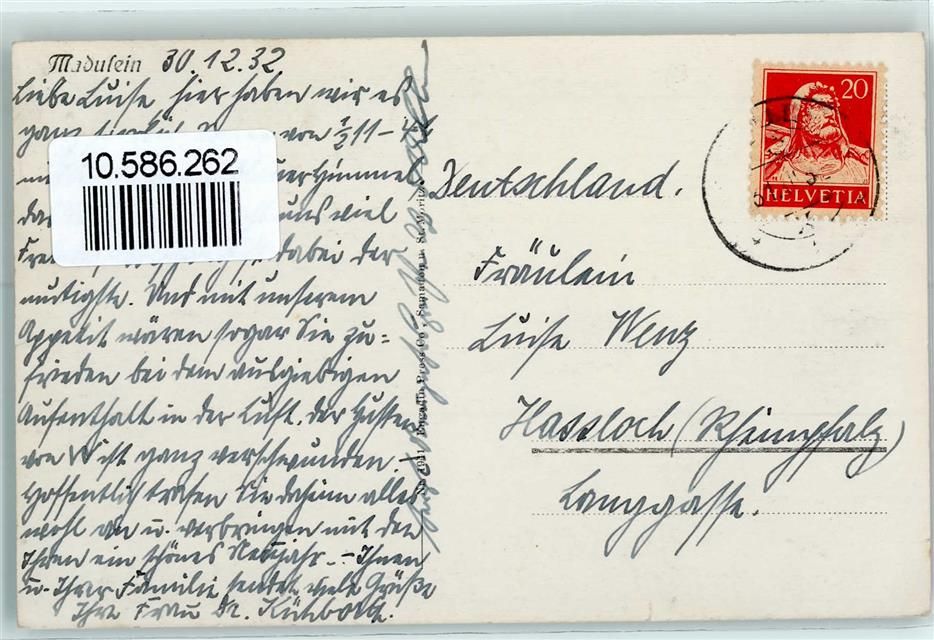 Madulein 30.12.32
Liebe Luise, hier haben wir es
ganz von ½11 - 4
10.586.262
Himmel
uns viel
dabei der
mutigste. Und mit unserem
Appetit wären sogar Sie zu=
frieden bei dem ausgiebigen
Aufenthalt in der Luft. Der Husten
von W ist ganz verschwunden.
Hoffentlich trafen Sie daheim alles
wohl an u. verbringen mit den
Ihren ein schönes Neujahr. - Ihnen
u. Ihrer Familie sendet viele Grüße
Ihre Frau Dr.
Engadin Press Co., Samaden u. St. Moritz
20
HELVETIA
Deutschland.
Fräulein
Luise Wenz
Hassloch (Rheinpfalz)
Langgasse.